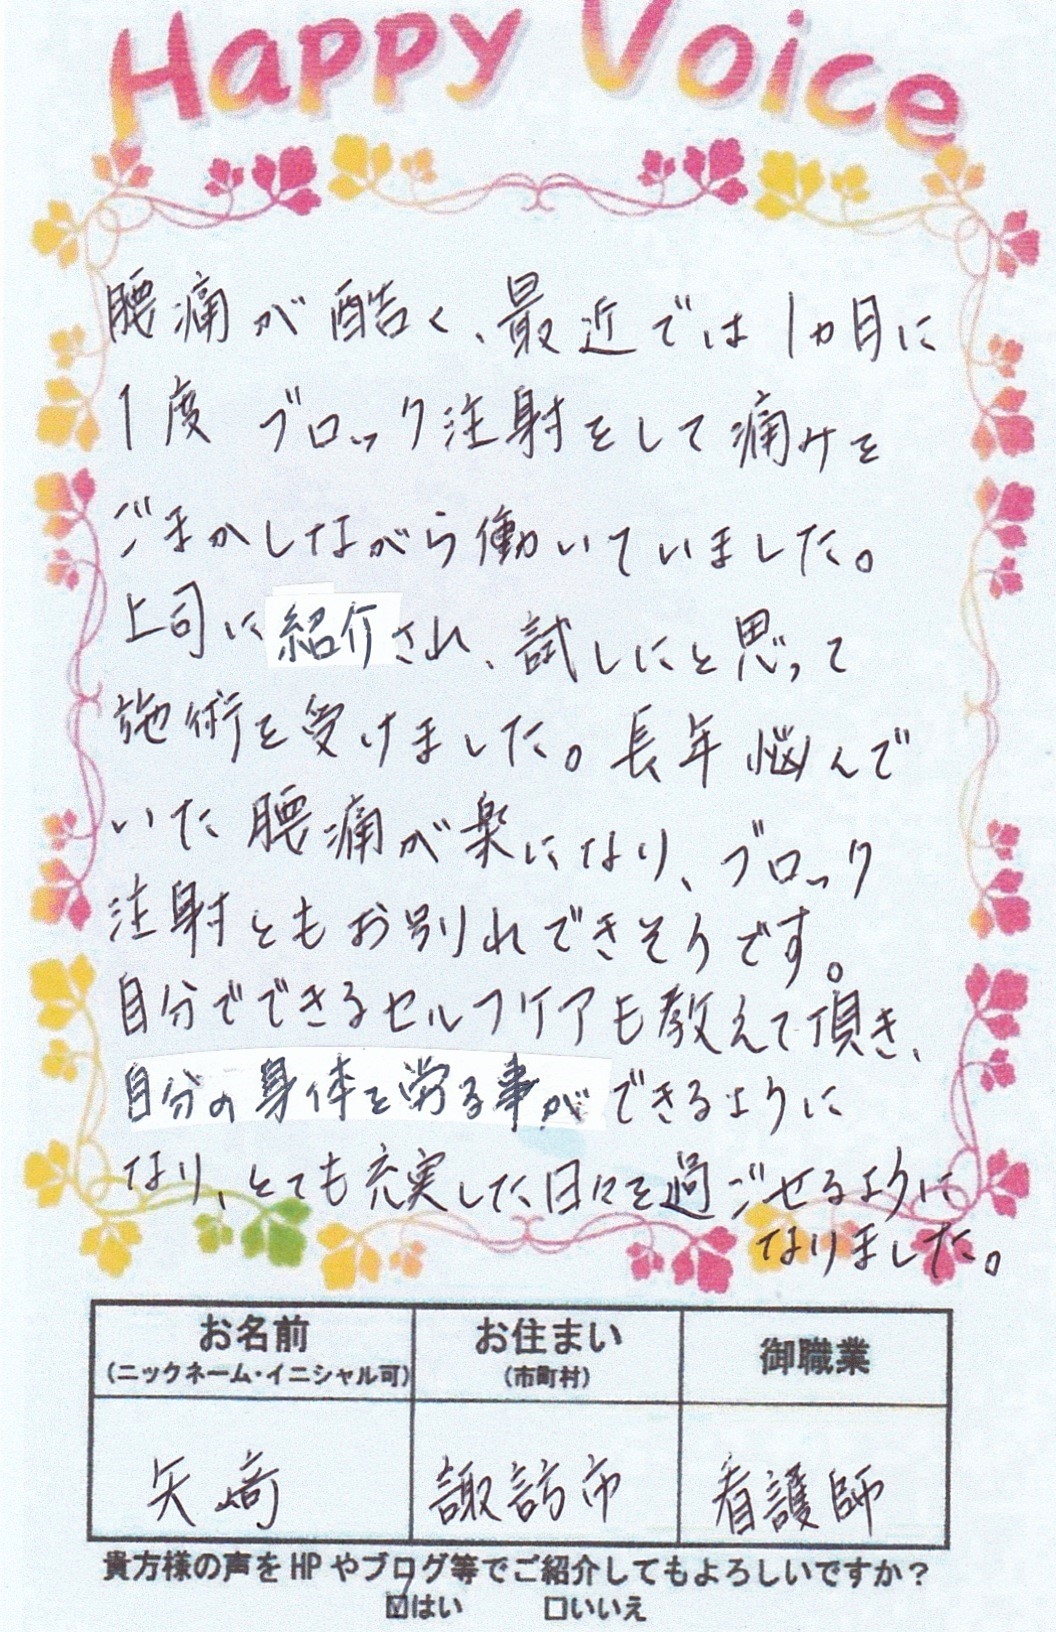 Happy Voice
腰痛が酷く、最近では1ヵ月に
1度 ブロック注射をして痛みを
ごまかしながら働いていました。
上司に紹介され、試しにと思って
施術を受けました。長年悩んで
いた腰痛が楽になり、ブロック
注射ともお別れできそうです。
自分でできるセルフケアも教えて頂き、
自分の身体を労る事ができるように
なり、とても充実した日々を過ごせるように
なりました。
お名前 お住まい 御職業
(ニックネーム・イニシャル可) (市町村)
矢崎 諏訪市 看護師
貴方様の声をHPやブログ等でご紹介してもよろしいですか?
☑はい □いいえ